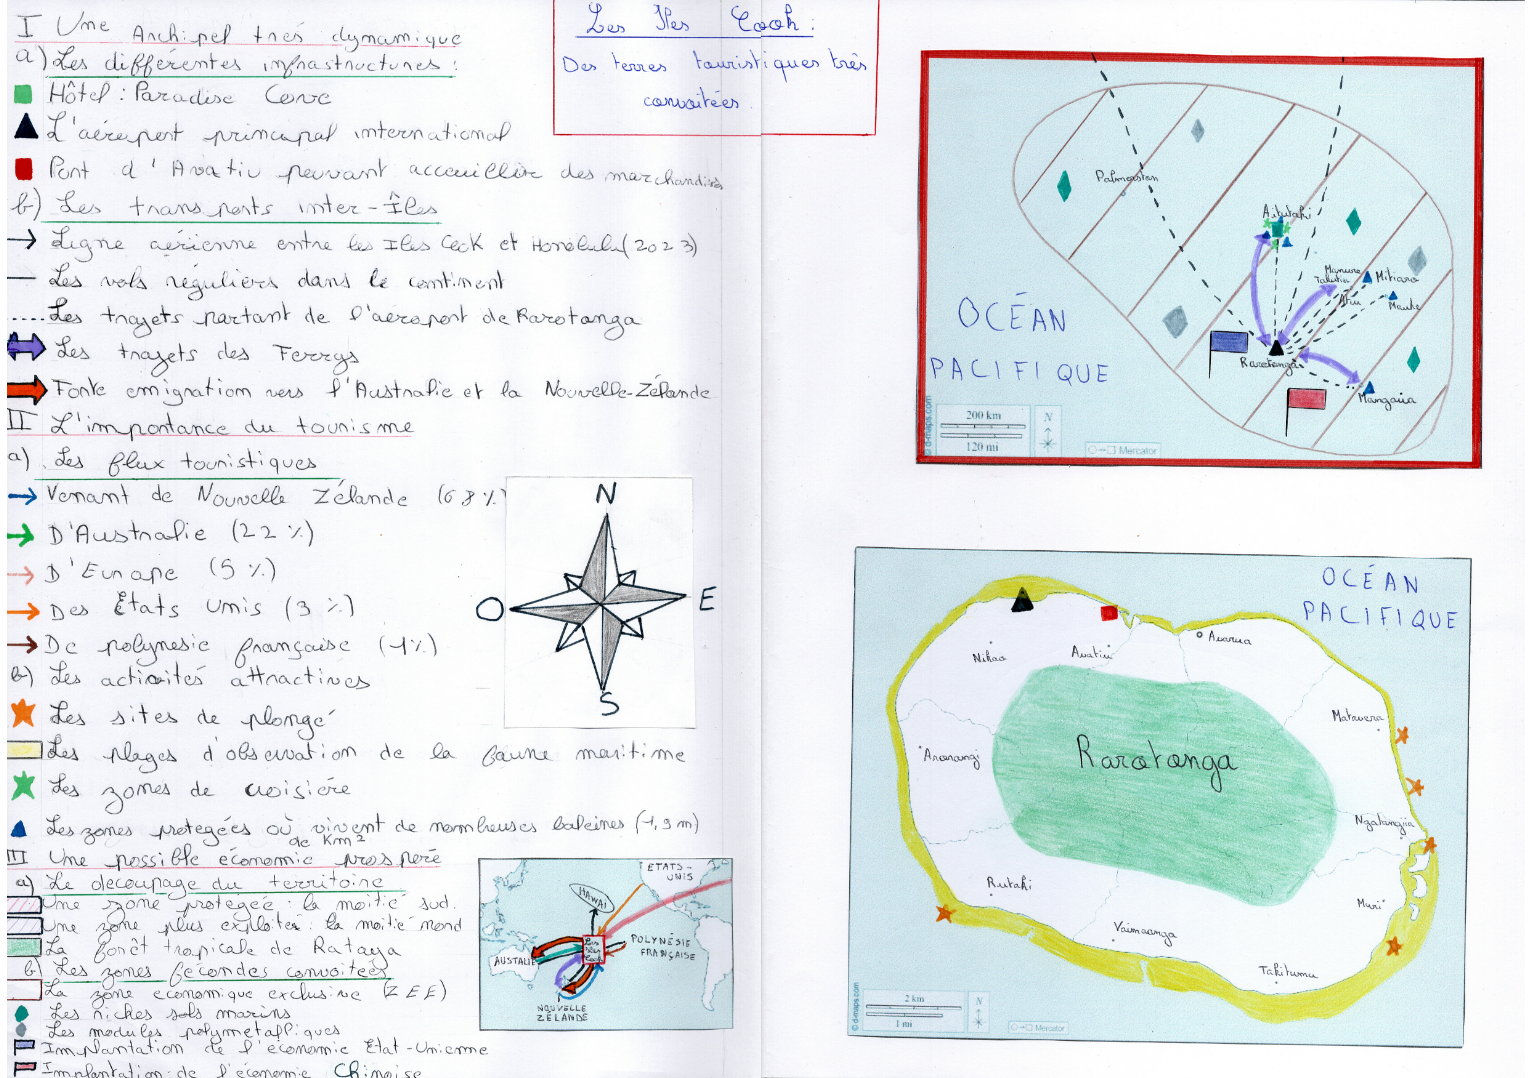 Les Iles Cook :
Des terres touristiques très
convoitées.
I Une Archipel très dynamique
a) Les différentes infrastructures :
Hôtel : Paradise Cove
L'aéroport principal international
Port d'Avatiu pouvant acceuillir des marchandises
b) Les transports inter-Îles
Ligne aérienne entre les Iles Cook et Honolulu (2023)
Les vols réguliers dans le continent
Les trajets partant de l'aéroport de Rarotonga
Les trajets des Ferrys
Forte emigration vers l'Australie et la Nouvelle-Zélande
II L'importance du tourisme
a) Les flux touristiques
Venant de Nouvelle Zélande (68%)
D'Australie (22%)
D'Europe (5%)
Des États Unis (3%)
De polynesie française (1%)
b) Les activités attractives
Les sites de plongé
Les plages d'observation de la faune maritime
Les zones de croisière
Les zones protegées où vivent de nombreuses baleines (1,9 m)
de Km²
III Une possible économie prospère
a) Le decoupage du territoire
Une zone protegée : la moitié sud.
Une zone plus exploité : la moitié nord
La forêt tropicale de Rataya
b) Les zones fecondes convoitées
La zone economique exclusive (ZEE)
Les riches sols marins
Les nodules polymetalliques
Implantation de l'économie Etat-Unienne
Implantation de l'économie Chinoise
N
O
E
S
ETATS-
UNIS
HAWAI
Les
Iles
Cook
POLYNÉSIE
FRANÇAISE
AUSTALIE
NOUVELLE
ZÉLANDE
Palmerston
Aitutaki
Manuae
Takutea
Mitiaro
Atiu
Mauke
Rarotonga
Mangaia
OCÉAN
PACIFIQUE
200 km
120 mi
N
Mercator
© d-maps.com
OCÉAN
PACIFIQUE
Nikao
Avatiu
Avarua
Matavera
Arorangi
Rarotonga
Ngatangiia
Rutaki
Muri
Vaimaanga
Titikaveka
2 km
1 mi
N
Mercator
© d-maps.com